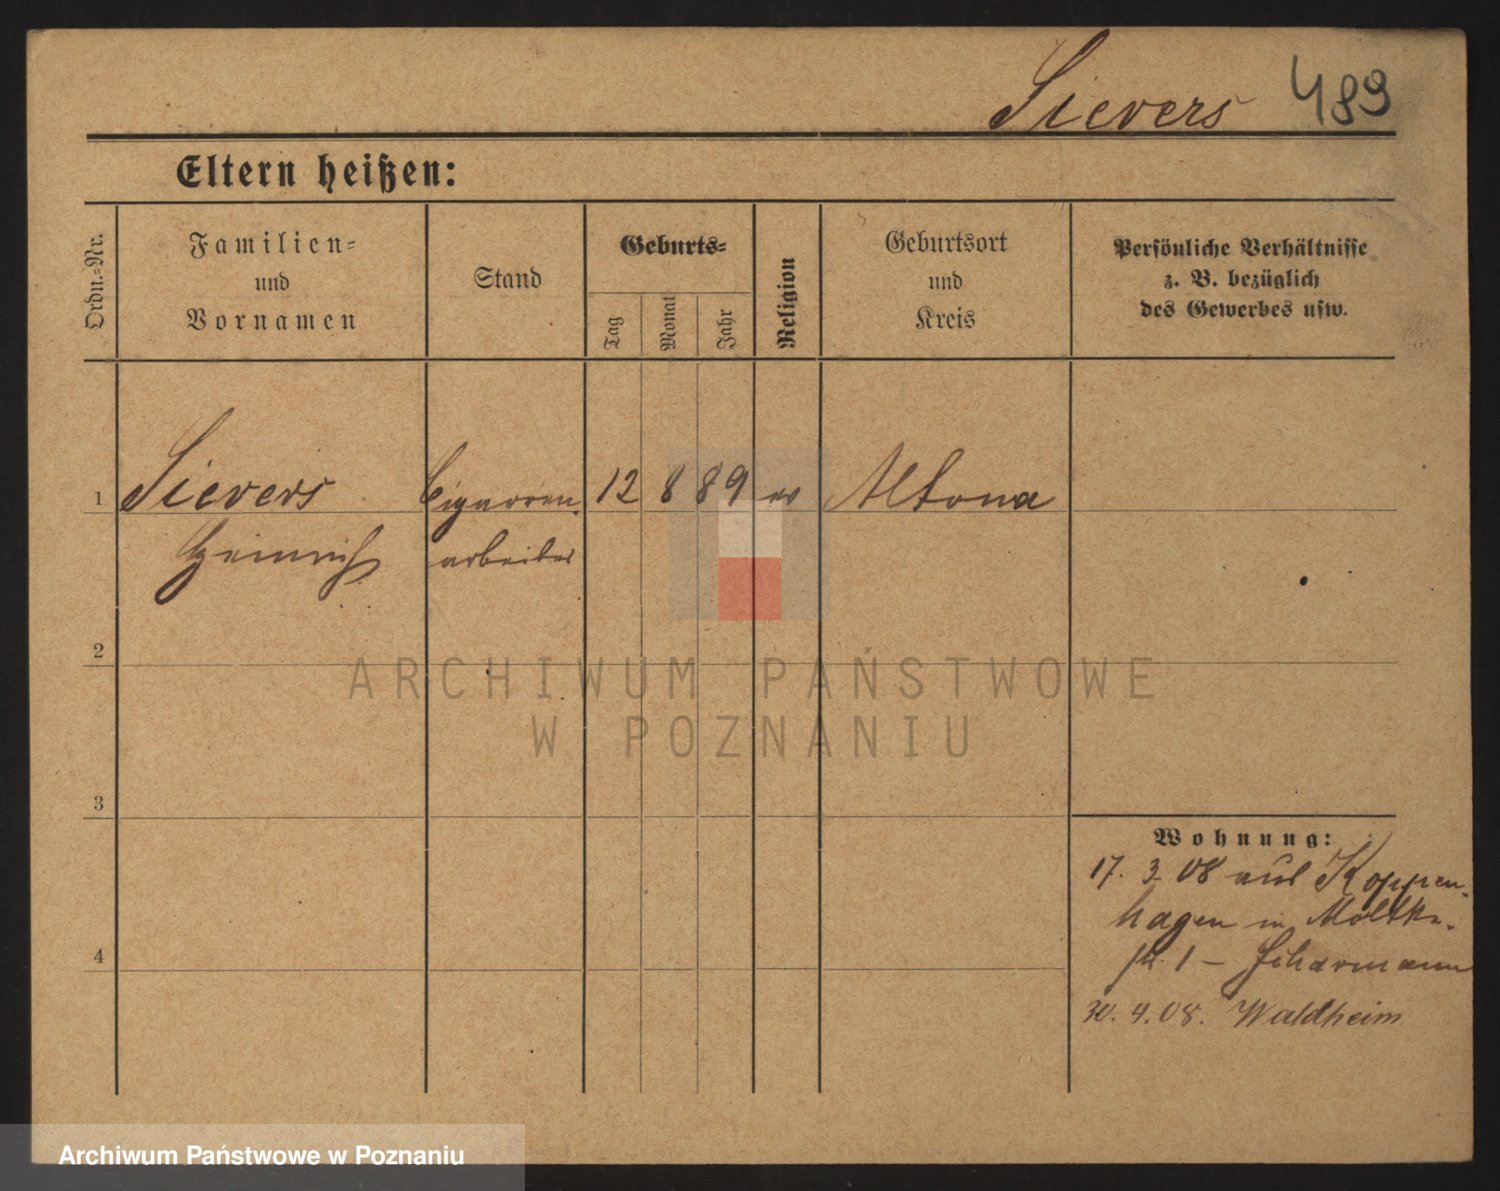 Sievers 489
Eltern heißen:
Ordn.-Nr.
Familien-
und
Vornamen
Stand
Geburts-
Tag
Monat
Jahr
Religion
Geburtsort
und
Kreis
Persönliche Verhältnisse
z. B. bezüglich
des Gewerbes usw.
1 Sievers Cigarren- 12 8 89 ev Altona
Heinrich arbeiter
2
ARCHIWUM PAŃSTWOWE
W POZNANIU
3
Wohnung:
17. 3. 08 aus Koppen-
hagen in Moltke-
str. 1 – Scharmann
4
30. 4. 08. Waldheim
Archiwum Państwowe w Poznaniu